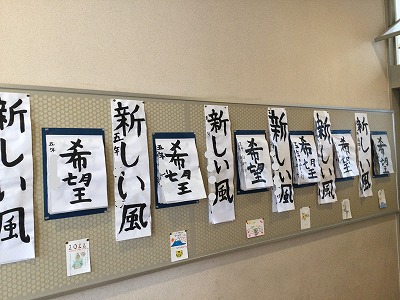 新しい風
五年
希望
新しい風
五年
希望
五年
新しい風
希望
新しい風
希望
新しい風
希望
新しい風
希望